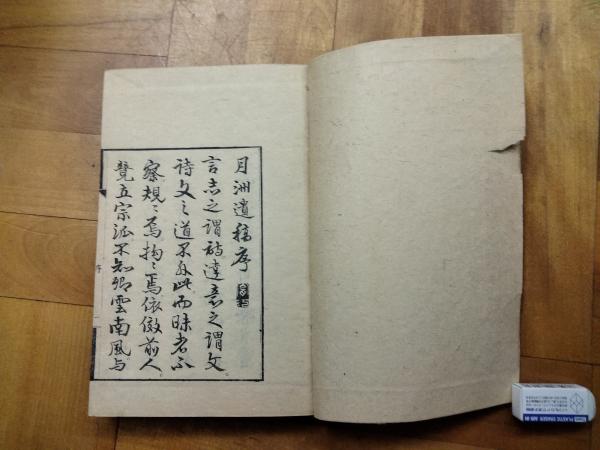 月洲遺稿序
言志之謂詩達意之謂文
詩文之道不外此而昧者不
察規〻焉拘〻焉依倣前人
覽立宗派不知卿雲南風与
序
PLASTIC ERASER